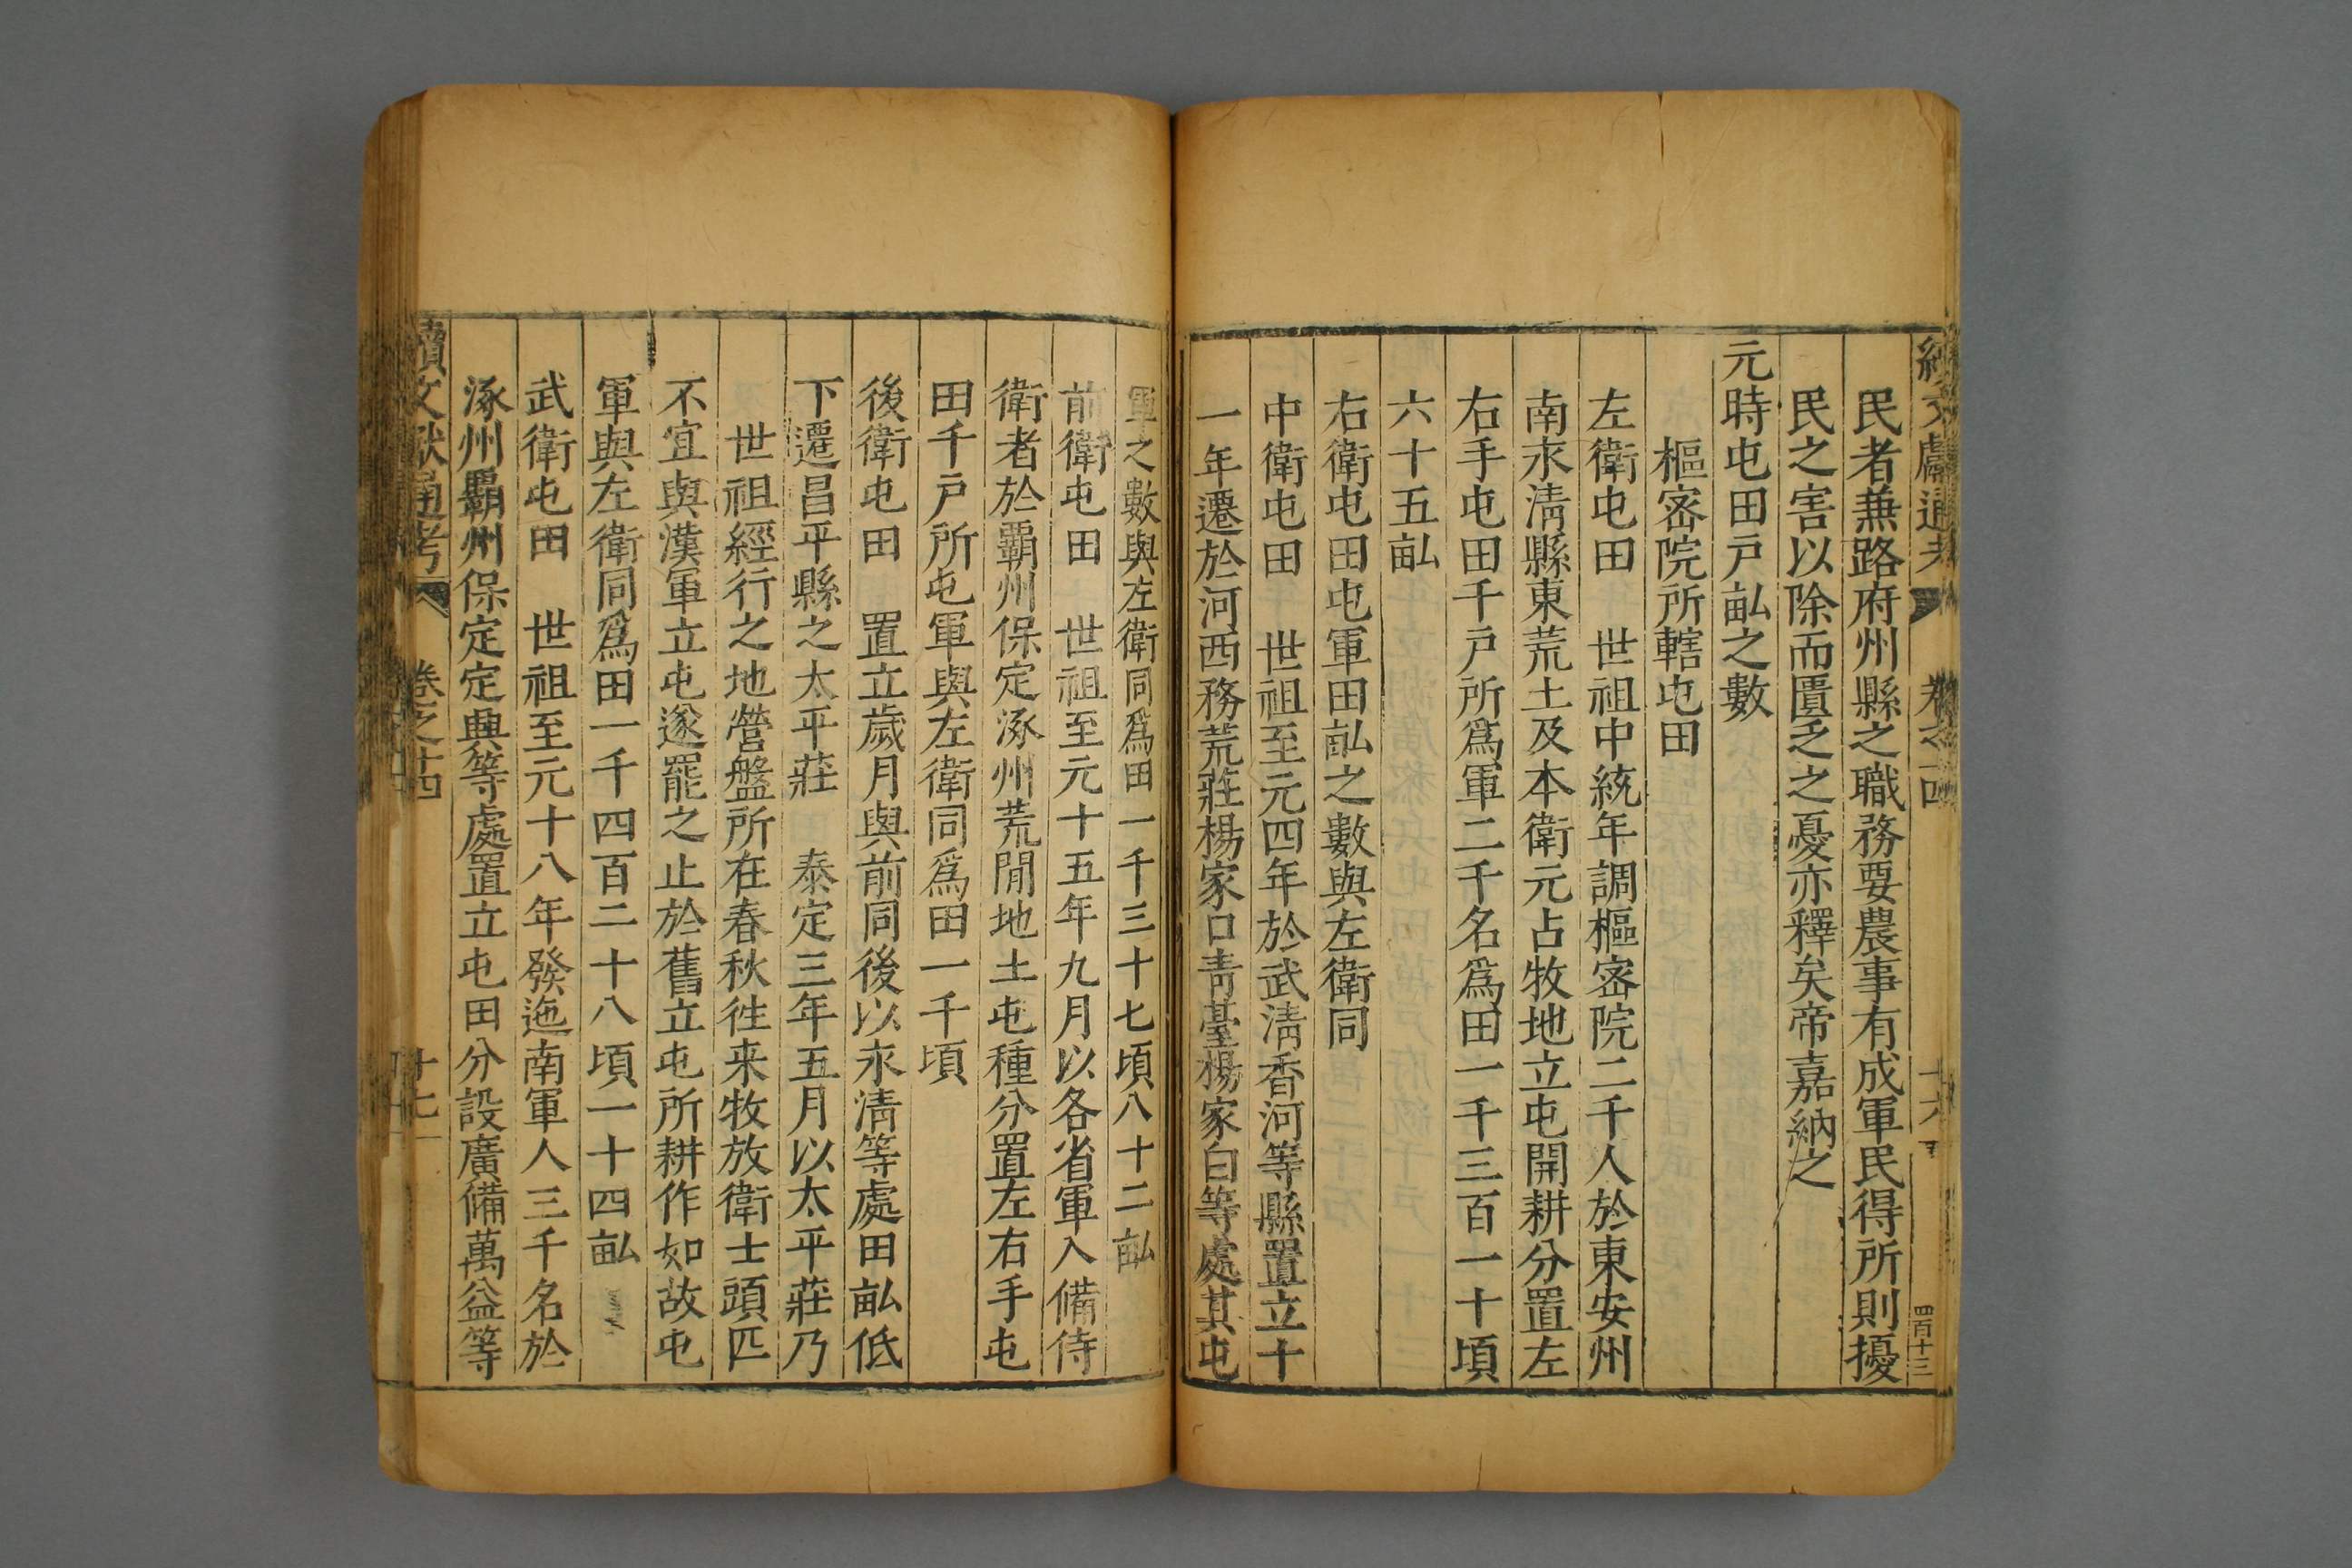 續文獻通考 卷之十四 十六 四百十三
民者兼路府州縣之職務要農事有成軍民得所則擾
民之害以除而匱乏之憂亦釋矣帝嘉納之
元時屯田戸畝之數
樞密院所轄屯田
左衛屯田 世祖中統年調樞密院二千人於東安州
南永淸縣東荒土及本衛元占牧地立屯開耕分置左
右手屯田千戸所爲軍二千名爲田一千三百一十頃
六十五畝
右衛屯田屯軍田畝之數與左衛同
中衛屯田 世祖至元四年於武淸香河等縣置立十
一年遷於河西務荒莊楊家口靑臺楊家白等處其屯
軍之數與左衛同爲田一千三十七頃八十二畝
前衛屯田 世祖至元十五年九月以各省軍入備侍
衛者於覇州保定涿州荒閒地土屯種分置左右手屯
田千戸所屯軍與左衛同爲田一千頃
後衛屯田 置立歲月與前同後以永淸等處田畝低
下遷昌平縣之太平莊 泰定三年五月以太平莊乃
世祖經行之地營盤所在春秋徃来牧放衛士頭匹
不宜與漢軍立屯遂罷之止於舊立屯所耕作如故屯
軍與左衛同爲田一千四百二十八頃一十四畝
武衛屯田 世祖至元十八年發迤南軍人三千名於
涿州覇州保定定興等處置立屯田分設廣備萬益等
續文獻通考 卷之十四 十七